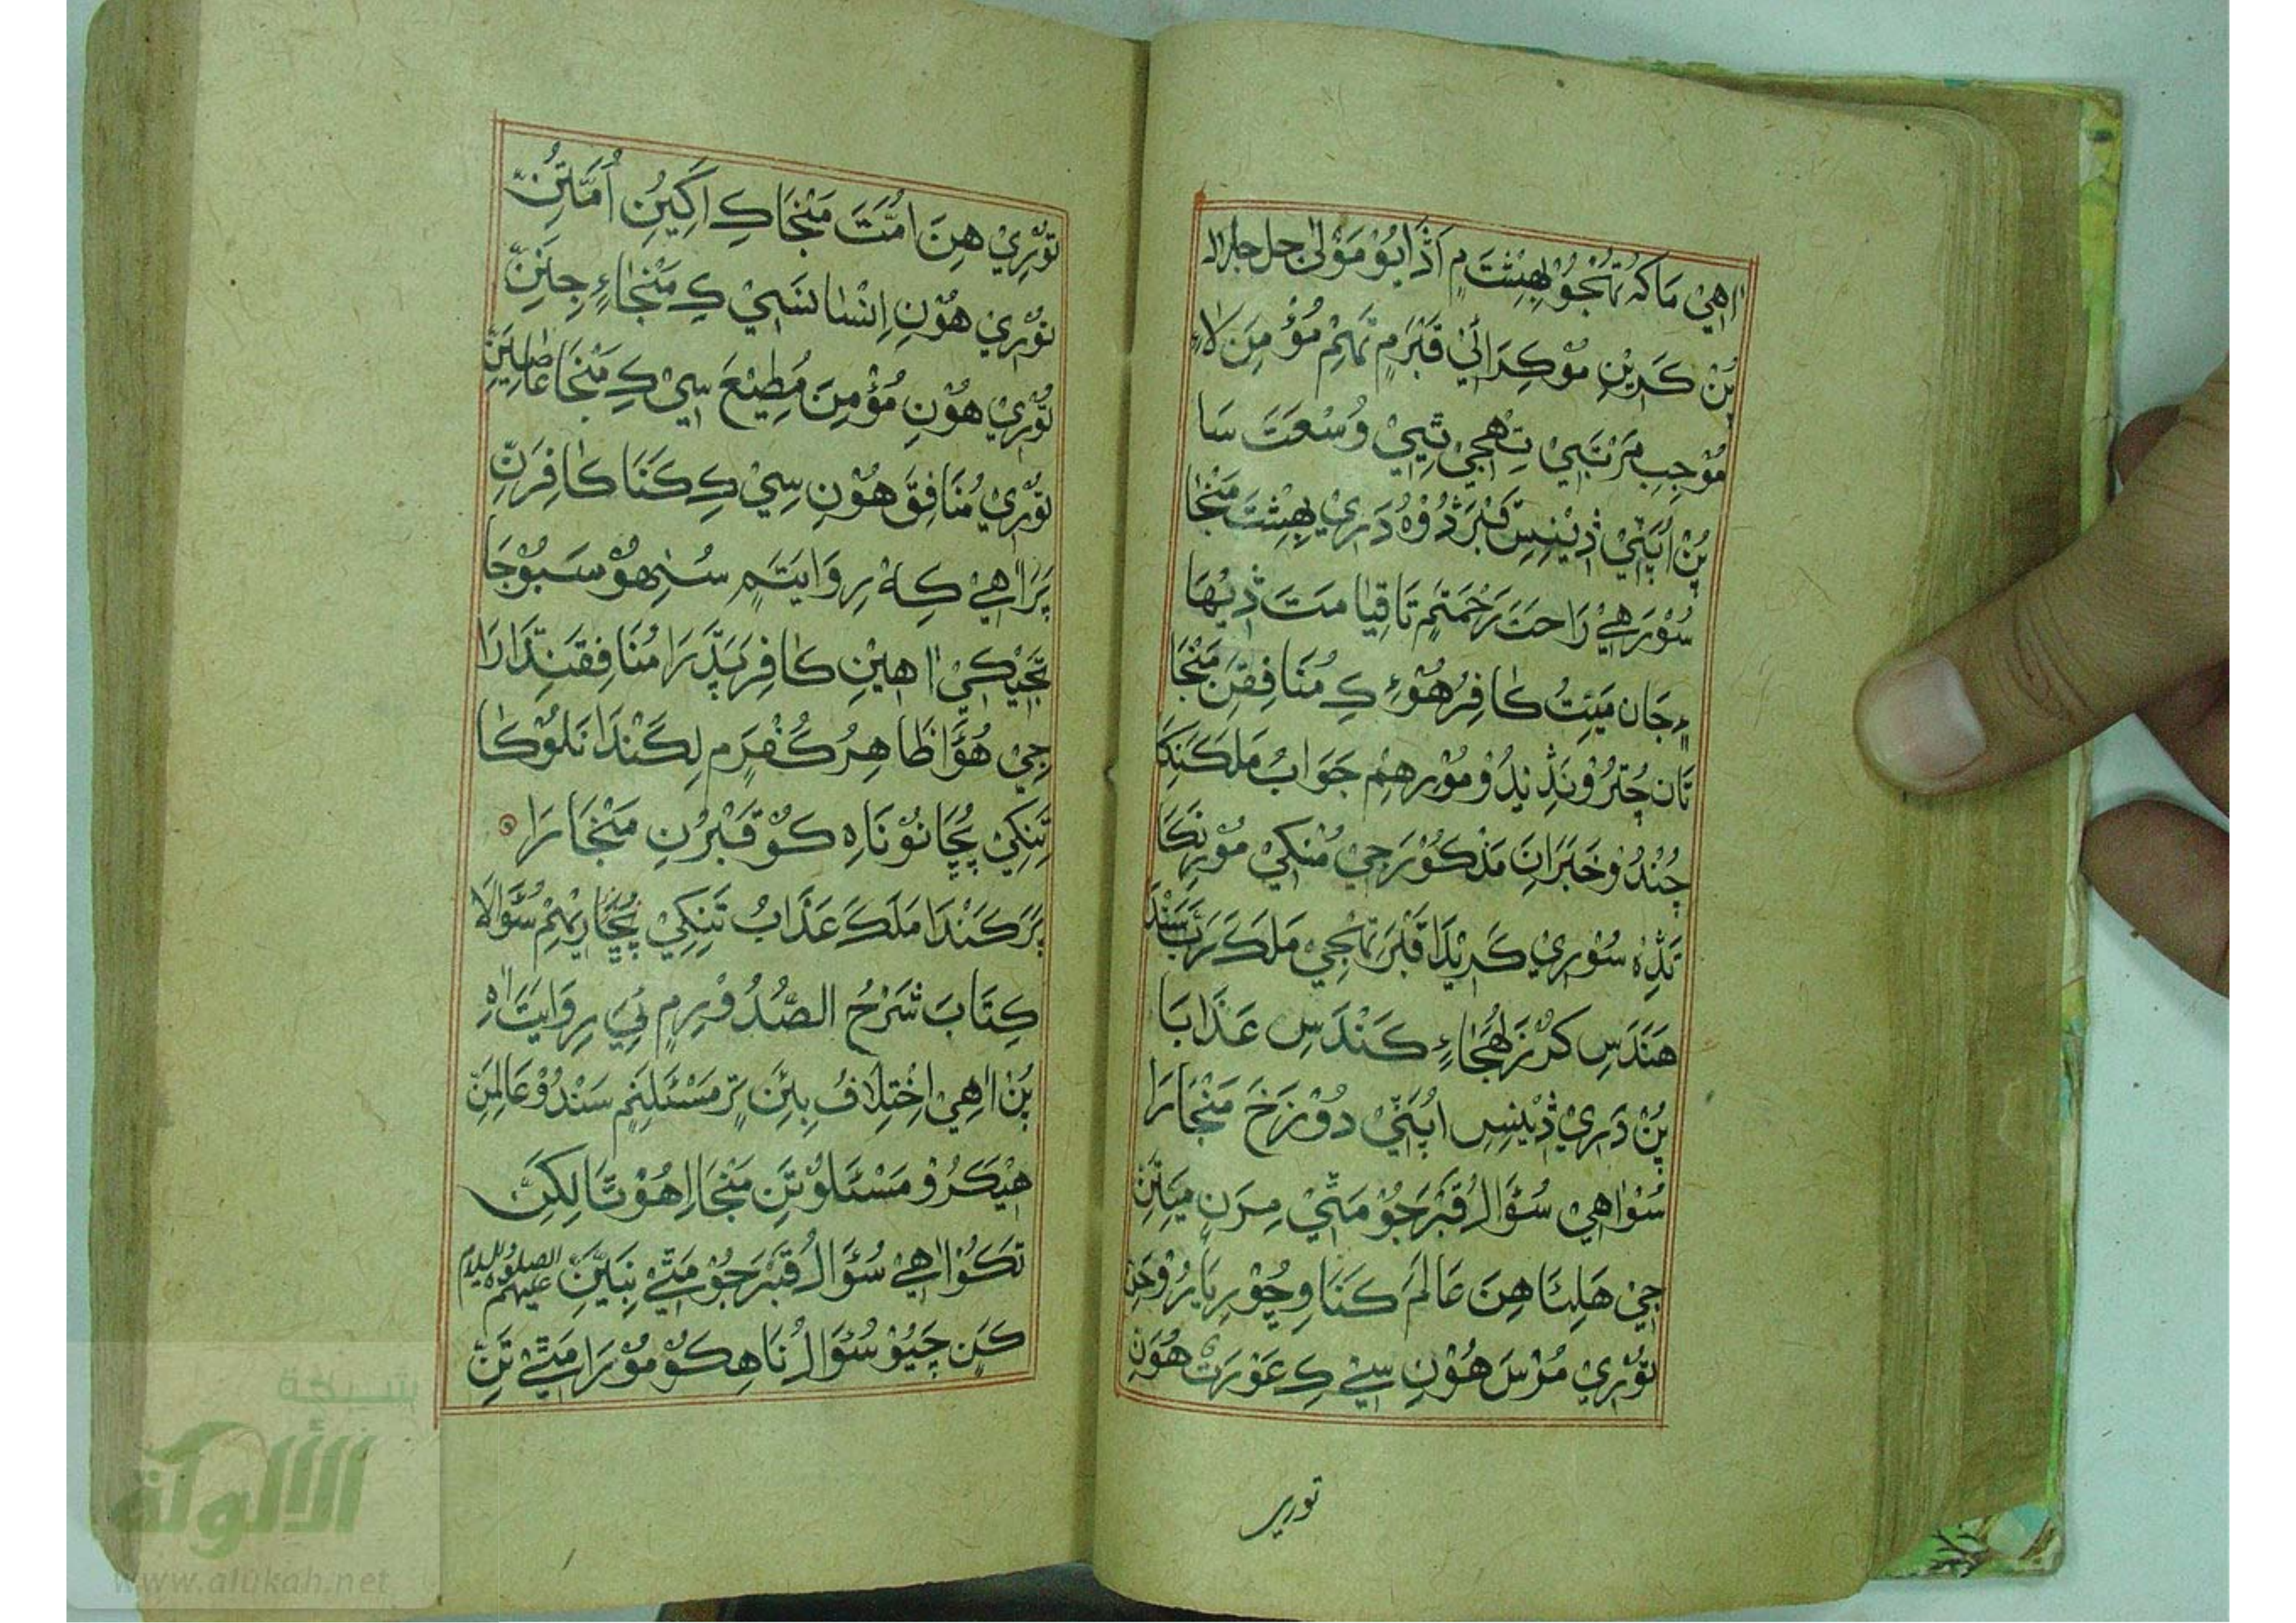 اٰهِيْ مَاكَہُ تُهْجُوْ بِهِشْتَ ۾ اَڏَايُوْ مَوْلٰى جل جلالہ
پُنْ كَرِيْنِ مُوْكِرَائِيْ قَبْرَمِ تَهِمْ مُؤْمِنَ لَاءِ
مُوْجِبِ مَرْتَبَيْ تِهِجِيْ ٿِيَيْ وُسْعَتَ سَا
پُنْ اُپَٽِيْ ڏِيْنِسِ قَبْرَ ڎُوْهُ دَرِيْ بِهِشْتَ مَنْجَا
سُوْرَهِيْ رَاحَتَ رَحْمَتَمِ تَا قِيَامَتَ ڏِيْهَا
۾ جَان مَيِّتُ كَافِرُ هُوْءِ كِ مُنَافِقَنِ مَنْجَا
تَان جُتُرُوْ نَڎِ نِڎُوْ مُوْرِهِمْ جَوَابُ مَلَكَنِكَا
چُنْدُوْ خَبَرَانِ مَذْكُوْرَجِيْ مُنْكِيْ مُوْرِنَكَا
تَڎِہْ سُوْرِيْ كَرِيْدَا قَبْرَ تَهِجِيْ مَلَكَ رَبَّ سَنْدَا
هَنَدَسِ كُرْزَ لُهَجَاءِ كَنْدَسِ عَذَابَا
پُنْ دَرِيْ ڏِيْنِسِ اُپَٽِيْ دُوْزَخَ مَنْجَارَا
سُوْاٰهِيْ سُؤَالُ قَبْرَجُوْ مَٿِيْ مِرَنِ مَيِّتَنِ
جِيْ هَلِئَا هِنَ عَالَمَ كَنَا وِچُوْرِ بَارُوْ جَنِ
تُوْرِيْ مُرْسَ هُوْنِ سِيْ كِ عَوْرَتْ هُوَنِ
توري
تُوْرِيْ هِنَ اُمَّتَ مَنْجَا كِ اَكِيَنِ اُمَّتَنِ
تُوْرِيْ هُوْنِ اِنْسَانَ سَيْ كِ مَنْجَاءِ جِنَنِ
تُوْرِيْ هُوْنِ مُؤْمِنَ مُطِيْعَ سِيْ كِ مَنْجَا عَاصِيَنِ
تُوْرِيْ مُنَافِقَ هُوْنِ سِيْ كِ كَنَا كَافِرَنِ
پَرَ اٰهِيْ كِہْ رِوَايَتَمِ سُنِهُوْ سَبُوْجَا
تَجَيْكِيْ اٰهِيْنِ كَافِرَ پَڌَرَا مُنَافِقَنِدَارَا
جِيْ هُوَّا ظَاهِرُ كُفْرَمِ لِكَنْدَا نَلُوْكَا
تِنِكِيْ پُڇَانُوْ نَاهِ كُوْ قَبْرُنِ مَنْجَارَا
پَرَ كَنْدَا مَلَكَ عَذَابُ تَنِكِيْ پُڇَارِيْهِمْ سُؤَالَا
كِتَابَ شَرْحُ الصُّدُوْرِمِ ٻِيْ رِوَايَتَ اٰہِ
پُنْ اٰهِيْ اِخْتِلَافُ بِئَنِ تَرِ مَسْئَلِنَمِ سَنْدُوْ عَالِمَنِ
هِيْكَرُوْ مَسْئَلُوْ تَنِ مَنْجَا اِهُوْ تَا لِكِنَ
تَكُوْ اٰهِيْ سُؤَالُ قَبْرَجُوْ مَٿِيْ نَبِيَنِ عليهم الصلوة والسلام
كَنِ چَيُوْ سُؤَالُ نَاهِ كُوْ مُوْرَا مَٿِيْ تَنِ
شبكة
الألوكة
www.alukah.net